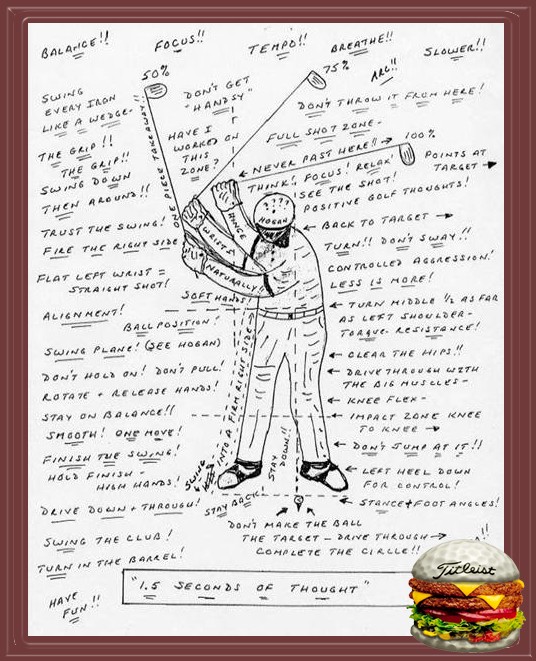 BALANCE!!
FOCUS!!
TEMPO!!
BREATHE!!
SLOWER!!
50%
75%
ARC!!
SWING
EVERY IRON
LIKE A WEDGE-
DON'T GET
"HANDSY"
DON'T THROW IT FROM HERE!
HAVE I
WORKED ON
THIS
ZONE?
FULL SHOT ZONE-
100%
THE GRIP!!
THE GRIP!!
SWING DOWN
THEN AROUND!!
ONE PIECE TAKEAWAY!!
NEVER PAST HERE!!
POINTS AT
TARGET
THINK! FOCUS! RELAX!
SEE THE SHOT!
POSITIVE GOLF THOUGHTS!
TRUST THE SWING!
FIRE THE RIGHT SIDE
? ? ? ?
HOGAN
WRISTS
HINGE
NATURALLY!!
BACK TO TARGET
TURN!! DON'T SWAY!!
CONTROLLED AGGRESSION!
LESS IS MORE!
FLAT LEFT WRIST =
STRAIGHT SHOT!
SOFT HANDS!
ALIGNMENT!
BALL POSITION!
TURN MIDDLE 1/2 AS FAR
AS LEFT SHOULDER-
TORQUE- RESISTANCE!
SWING PLANE! (SEE HOGAN)
CLEAR THE HIPS!!
DON'T HOLD ON! DON'T PULL!
ROTATE + RELEASE HANDS!
DRIVE THROUGH WITH
THE BIG MUSCLES-
KNEE FLEX-
STAY ON BALANCE!!
SMOOTH! ONE MOVE!
IMPACT ZONE KNEE
TO KNEE
FINISH THE SWING!
HOLD FINISH-
HIGH HANDS!
DON'T JUMP AT IT!!
SWING
INTO A FIRM RIGHT SIDE
STAY
DOWN!!
LEFT HEEL DOWN
FOR CONTROL!
DRIVE DOWN + THROUGH!
STAY BACK!
STANCE + FOOT ANGLES!
SWING THE CLUB!
TURN IN THE BARREL!
DON'T MAKE THE BALL
THE TARGET - DRIVE THROUGH
COMPLETE THE CIRCLE!!
"1.5 SECONDS OF THOUGHT"
HAVE
FUN!!
Titleist